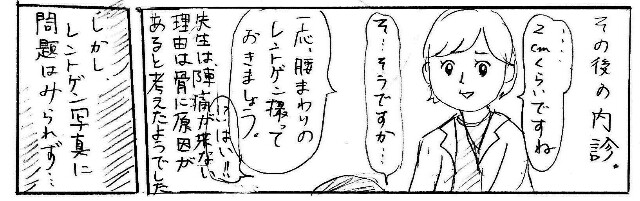 その後の内診。
……
2cmくらいですね
そ…そうですか…
一応、腰まわりの
レントゲン撮って
おきましょう。
はい!!
先生は、陣痛が来ない
理由は骨に原因が
あると考えたようでした
しかし
レントゲン写真に
問題はみられず…